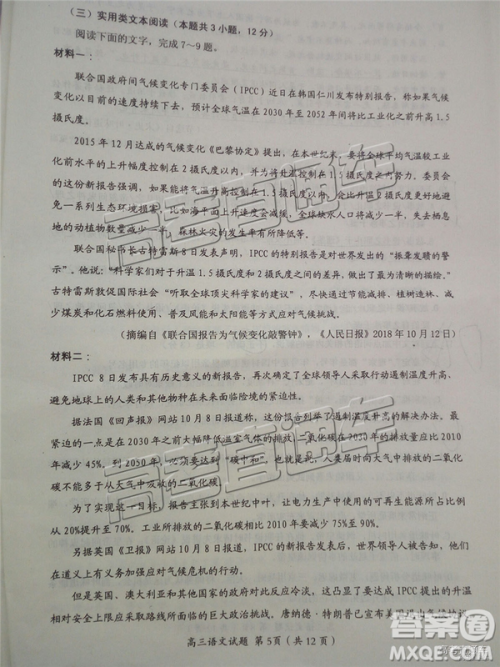 （三）实用类文本阅读（本题共3小题，12分）
阅读下面的文字，完成7～9题。
材料一：
联合国政府间气候变化专门委员会（IPCC）近日在韩国仁川发布特别报告，称如果气候
变化以目前的速度持续下去，预计全球气温在2030年至2052年间将比工业化之前升高1.5
摄氏度。
2015年12月达成的气候变化《巴黎协定》提出，在本世纪末，要将全球平均气温较工业
化前水平的上升幅度控制在2摄氏度以内，并为将此控制在1.5摄氏度以内而努力。委员会
的这份新报告强调，如果能将气温升高控制在1.5摄氏度以内，会比升温2摄氏度更好地避
免一系列生态环境损害，比如海平面上升速度会减缓，全球缺水人口将减少一半，失去栖息
地的动植物数量减少一半，森林火灾的发生率有所降低等。
联合国秘书长古特雷斯8日发表声明，IPCC的特别报告是对世界发出的“振聋发聩的警
示”。他说：“科学家们对于升温1.5摄氏度和2摄氏度之间的差异，做出了最为清晰的描绘。”
古特雷斯敦促国际社会“听取全球顶尖科学家的建议”，尽快做出改变，提高减排、植树造林、减
少煤炭和化石燃料使用、普及风能和太阳能等方式应对气候挑战。
（摘编自《联合国报告为气候变化敲警钟》，《人民日报》2018年10月12日）
材料二：
IPCC 8日发布具有历史意义的新报告，再次确定了全球领导人采取行动遏制温度升高，
避免地球上的人类和其他物种在未来面临险境的紧迫性。
据法国《回声报》网站10月8日报道，这份报告列举了遏制温度升高的解决办法。最
紧迫的一点是在2030年之前大幅降低温室气体的排放，二氧化碳在2030年的排放量应比2010
年减少45%，到2050年，必须要达到“碳中和”。也就是说，人类届时向大气中排放的二氧化
碳不能多于从大气中吸收的二氧化碳。
为了实现这一目标，报告主张到本世纪中叶，让电力生产中使用的可再生能源所占比例
从20%提升至70%。工业所排放的二氧化碳相比2010年要减少75%至90%。
另据英国《卫报》网站10月8日报道，IPCC的新报告发表后，世界领导人被告知，他们
在道义上有义务加强应对气候危机的行动。
但是英国、澳大利亚和其他国家的政府对此反应冷淡，这凸显了要达成将大气升温的升幅
相对安全上限应采取路线所面临的巨大政治挑战。唐纳德·特朗普已宣布美国退出气候协
高三语文试题 第5页（共12页）
高考直通车
高考直通车
答案圈